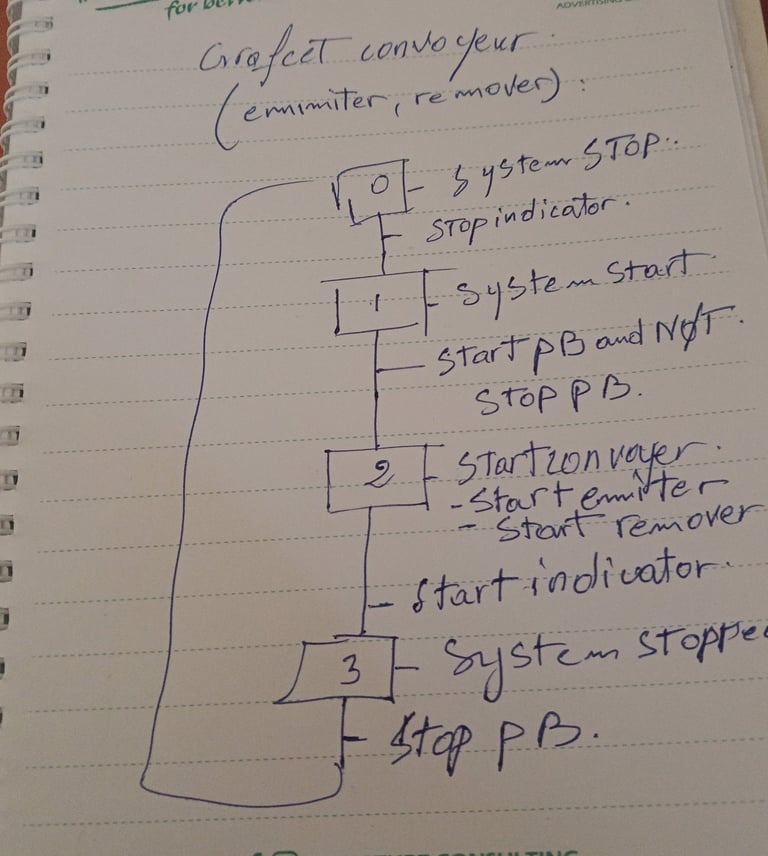 for be
ADVERTISING
Grafcet convoyeur.
(emimiter, remover):
0 System STOP..
STOP indicator.
1 System Start
Start PB and NOT.
STOP PB.
2 Start convoyer.
- Start emitter
- Start remover
Start indicator.
3 System stoppe
Stop PB.
CONSULTING